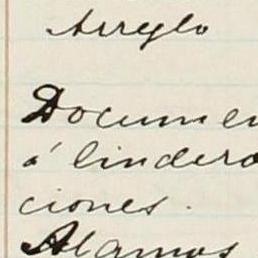 Arreglo
Documen
á lindero
ciones.
Alamos